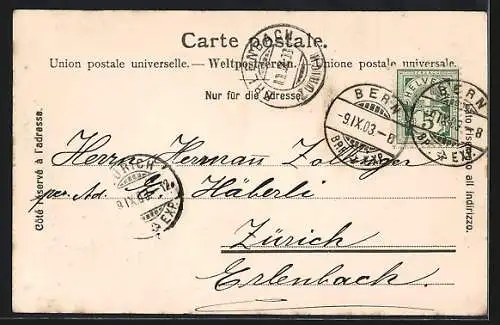 Carte postale.
Union postale universelle. — Weltpostverein. — Unione postale universale.
Nur für die Adresse.
Côté réservé à l'adresse.
Lato riservato all indirizzo.
HELVETIA
5
BERN
-9.IX.03.-8
EXP.
BERN
-8
EXP.
ZÜRICH
9.IX.03.-12
EXP.
Herrn Herman Zollinger
per Ad. G. Häberli
Zürich
Erlenbach.